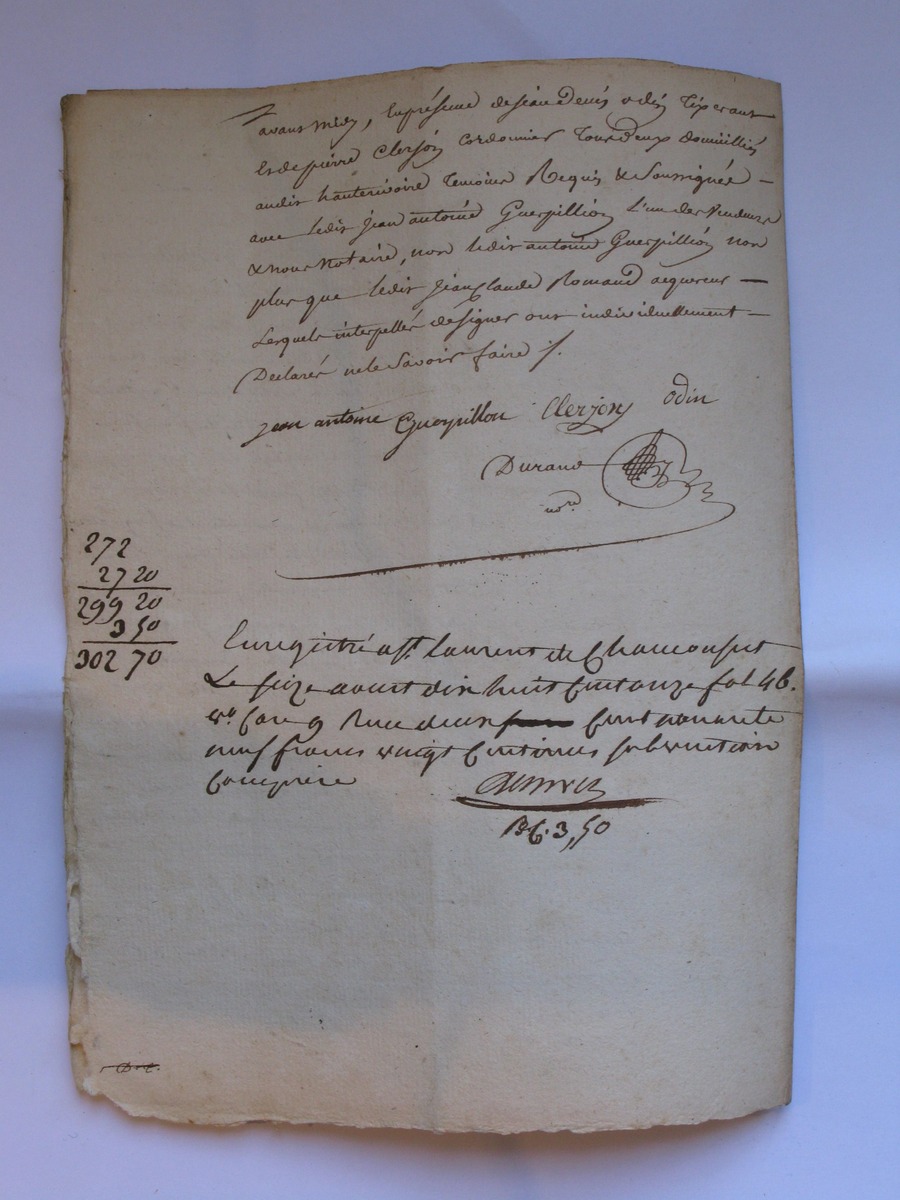 avant midy, En présence de jean Denis odin Tisserant
Et de pierre Clerjon cordonnier Tous deux Domiciliés
audit hauterivoire Temoins Requis & Soussignés —
avec ledit jean antoine Guerpillion L'un des vendeurs
& nous Notaire, non ledit antoine Guerpillion non
plus que ledit jean Claude Romand acquereur —
Lesquels interpellés de signer ont individuellement —
Declarés ne le Savoir faire ./.
jean antoine Guerpillon Clerjon odin
Durand
nore
272
27 20
299 20
3 50
302 70
Enregistré a St. Laurent de Chamousset
Le seize aout dix huit Cent onze fol 46.
vo. Case 9 Recu deux Cent nonante
neuf francs vingt Centimes subvention
Comprise
Bt. 3,50